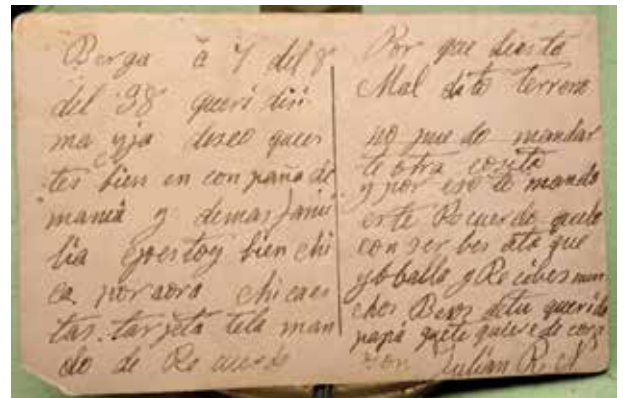 Berga á 7 del 8
del 38 queri disi
ma yja deseo quees
tes bien en con paña de
mamá y demas fami
lia yoestoy bien chi
ca por aora chica es
tas. tarjeta tela man
do de Re cuerdo
Por que siento
Mal dito terreno
no pue do mandar
te otra cosita
y por eso te mando
este Recuerdo quelo
con ser bes ata que
yo balla y Re cibes mun
chos Besos detu querido
papá quete quiere de cora
zon Julian R. A